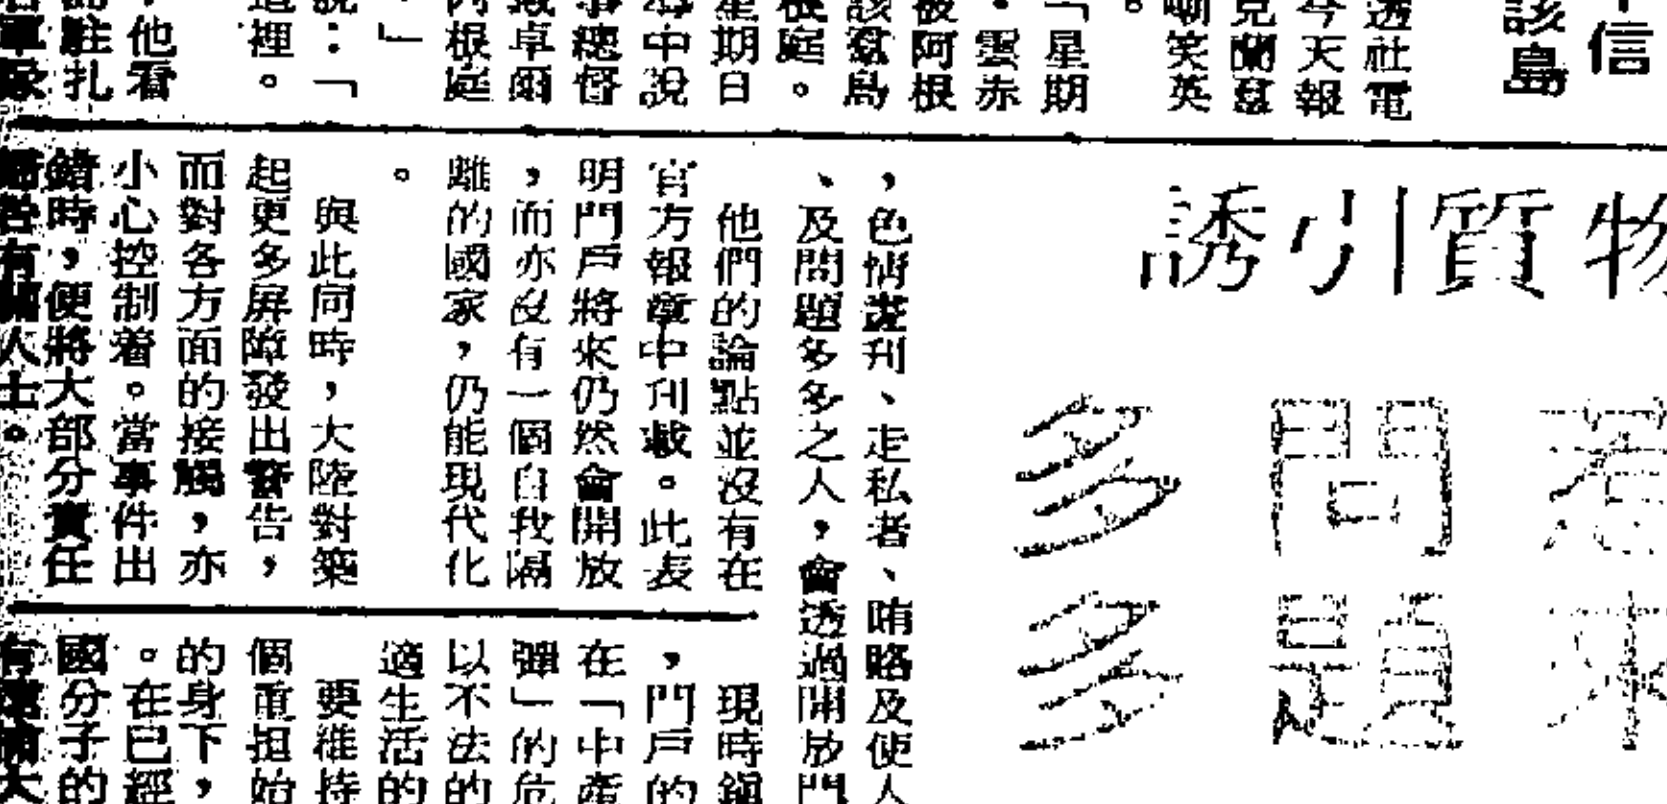 信
該島
透社電
今天報
克蘭羣
嘲笑英
。
「星期
・雲赤
被阿根
該羣島
根庭。
星期日
中說
事總督
卓爾
內根庭
」
說：「
這裡。
他看
駐扎
軍隊
物質引誘
來
問題
多多
，色情畫刊、走私者、賄賂及使人
、及問題多多之人，會透過開放門
他們的論點並沒有在
官方報章中刊載。此表
明門戶將來仍然會開放
，而亦沒有一個自我隔
離的國家，仍能現代化
。
與此同時，大陸對築
起更多屏障發出警告，
而對各方面的接觸，亦
小心控制着。當事件出
錯時，便將大部分責任
有關人士。
現時鎮
，門戶的
在「中產
彈」的危
以不法的
適生活的
要維持
個重担始
的身下，
。在已經
國分子的
有 大